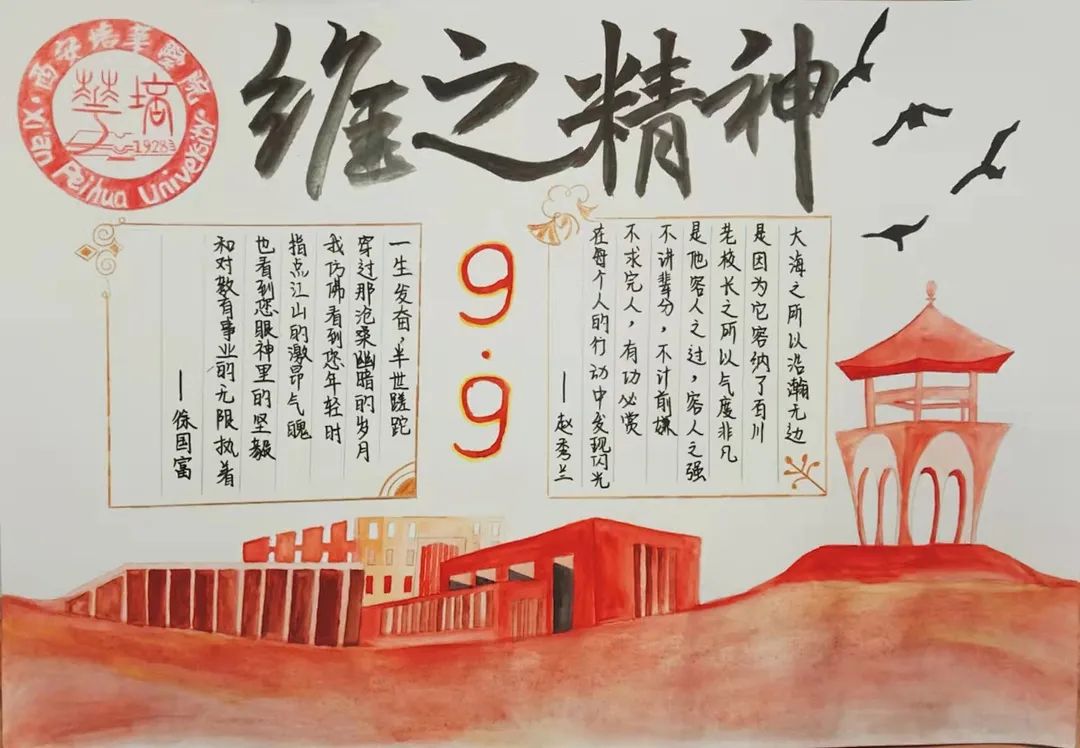 西安培华學院
華培
1928
Xi'an Peihua University
维之精神
9.9
大海之所以浩瀚无边
是因为它容纳了百川
老校长之所以气度非凡
是他容人之过，容人之强
不讲辈分，不计前嫌
不求完人，有功必赏
在每个人的行动中发现闪光
—赵秀兰
一生发奋，半世蹉跎
穿过那沧桑幽暗的岁月
我仿佛看到您年轻时
指点江山的激昂气魄
也看到您眼神里的坚毅
和对教育事业的无限执着
—徐国富